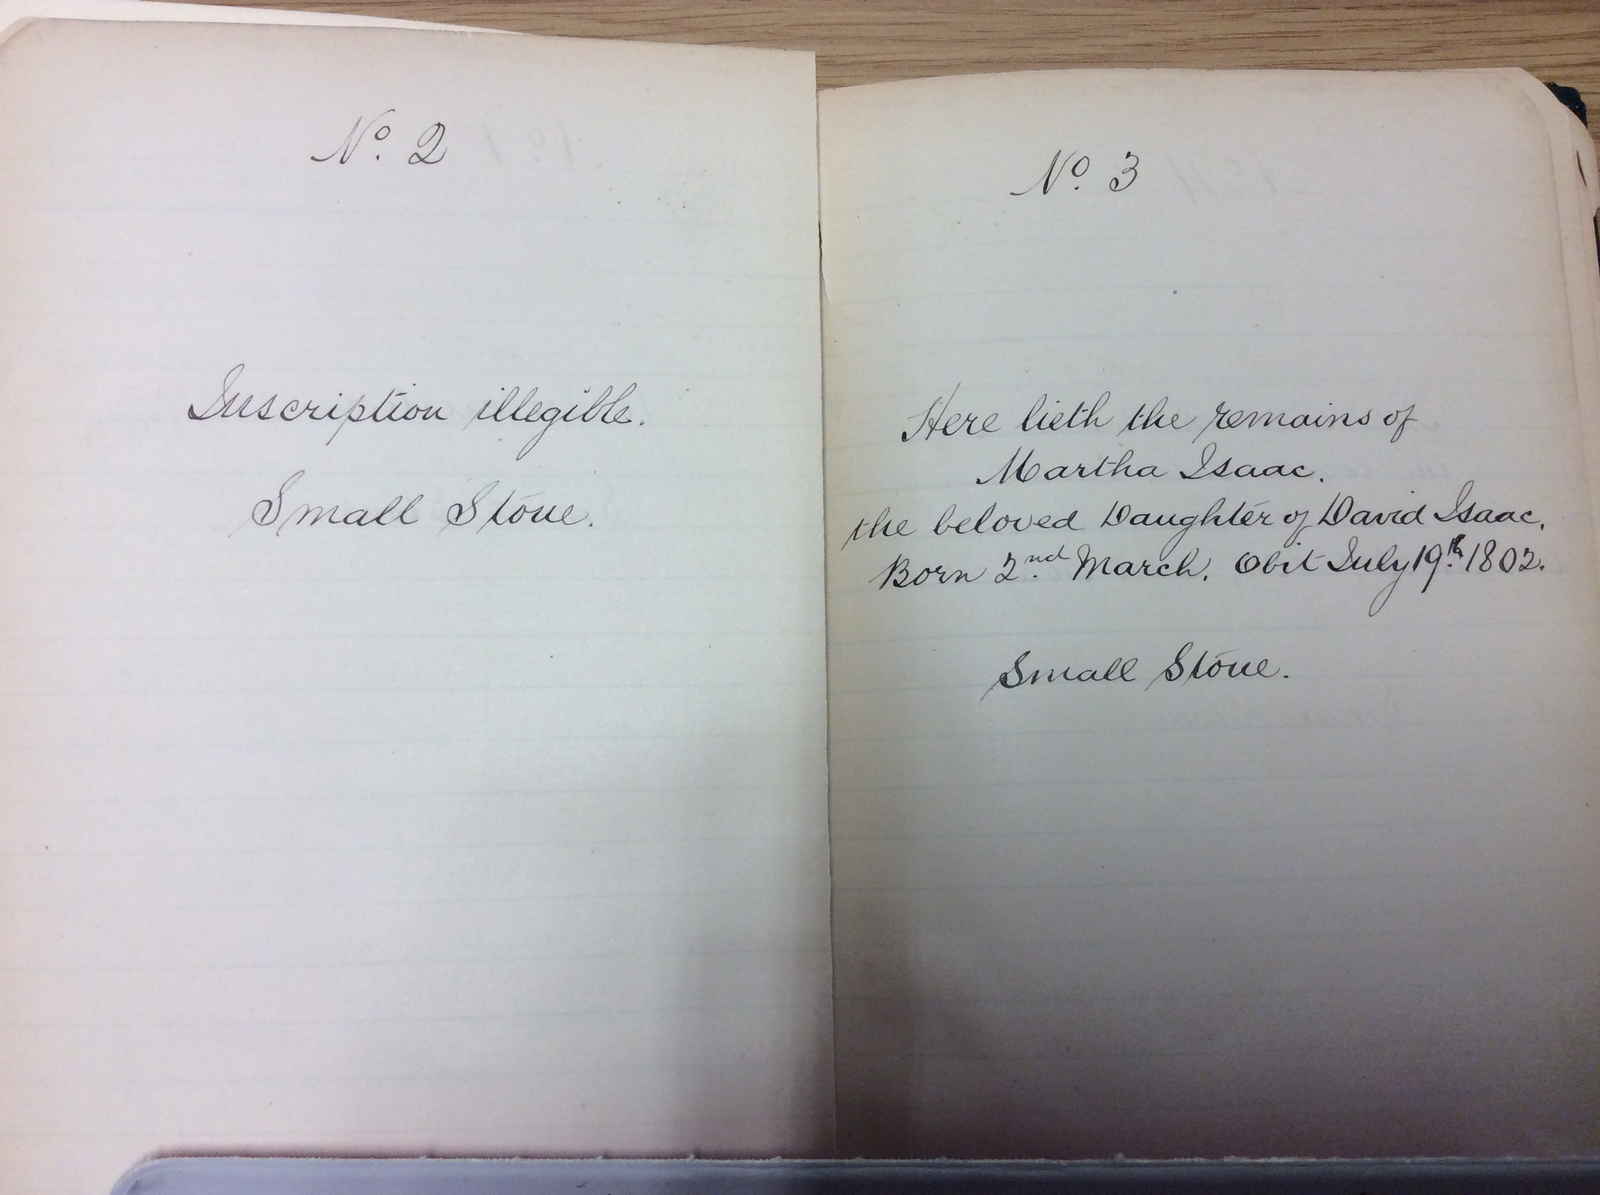 No. 2
Inscription illegible.
Small Stone.
No. 3
Here lieth the remains of
Martha Isaac.
the beloved Daughter of David Isaac.
Born 2nd. March. Obit July 19th. 1802.
Small Stone.